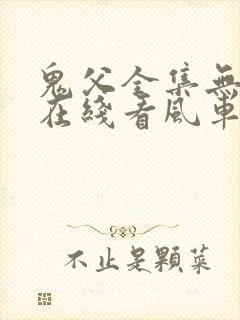 鬼父全集無
在綫看風車
不止是顆菜